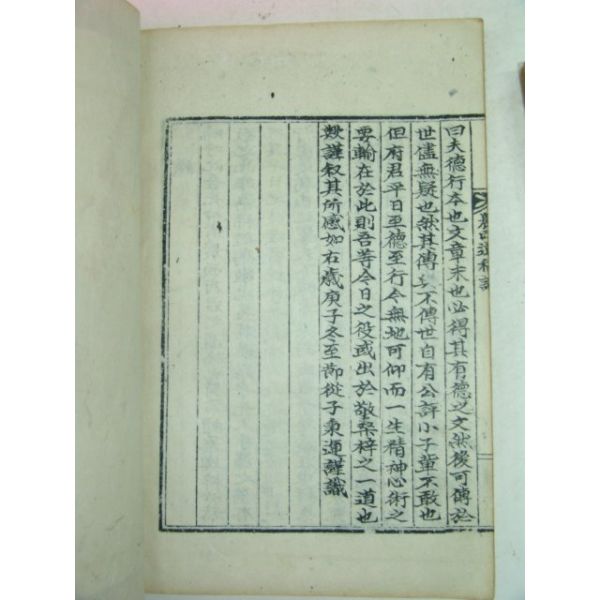 曰夫德行本也文章末也必得其有德之文然後可傳於
世儘無疑也然其傳與不傳世自有公評小子輩不敢也
但府君平日至德至行今無地可仰而一生精神心術之
要輸在於此則吾等今日之役或出於敬桑梓之一道也
歟謹叙其所感如右歲庚子冬至節從子東運謹識
遺稿